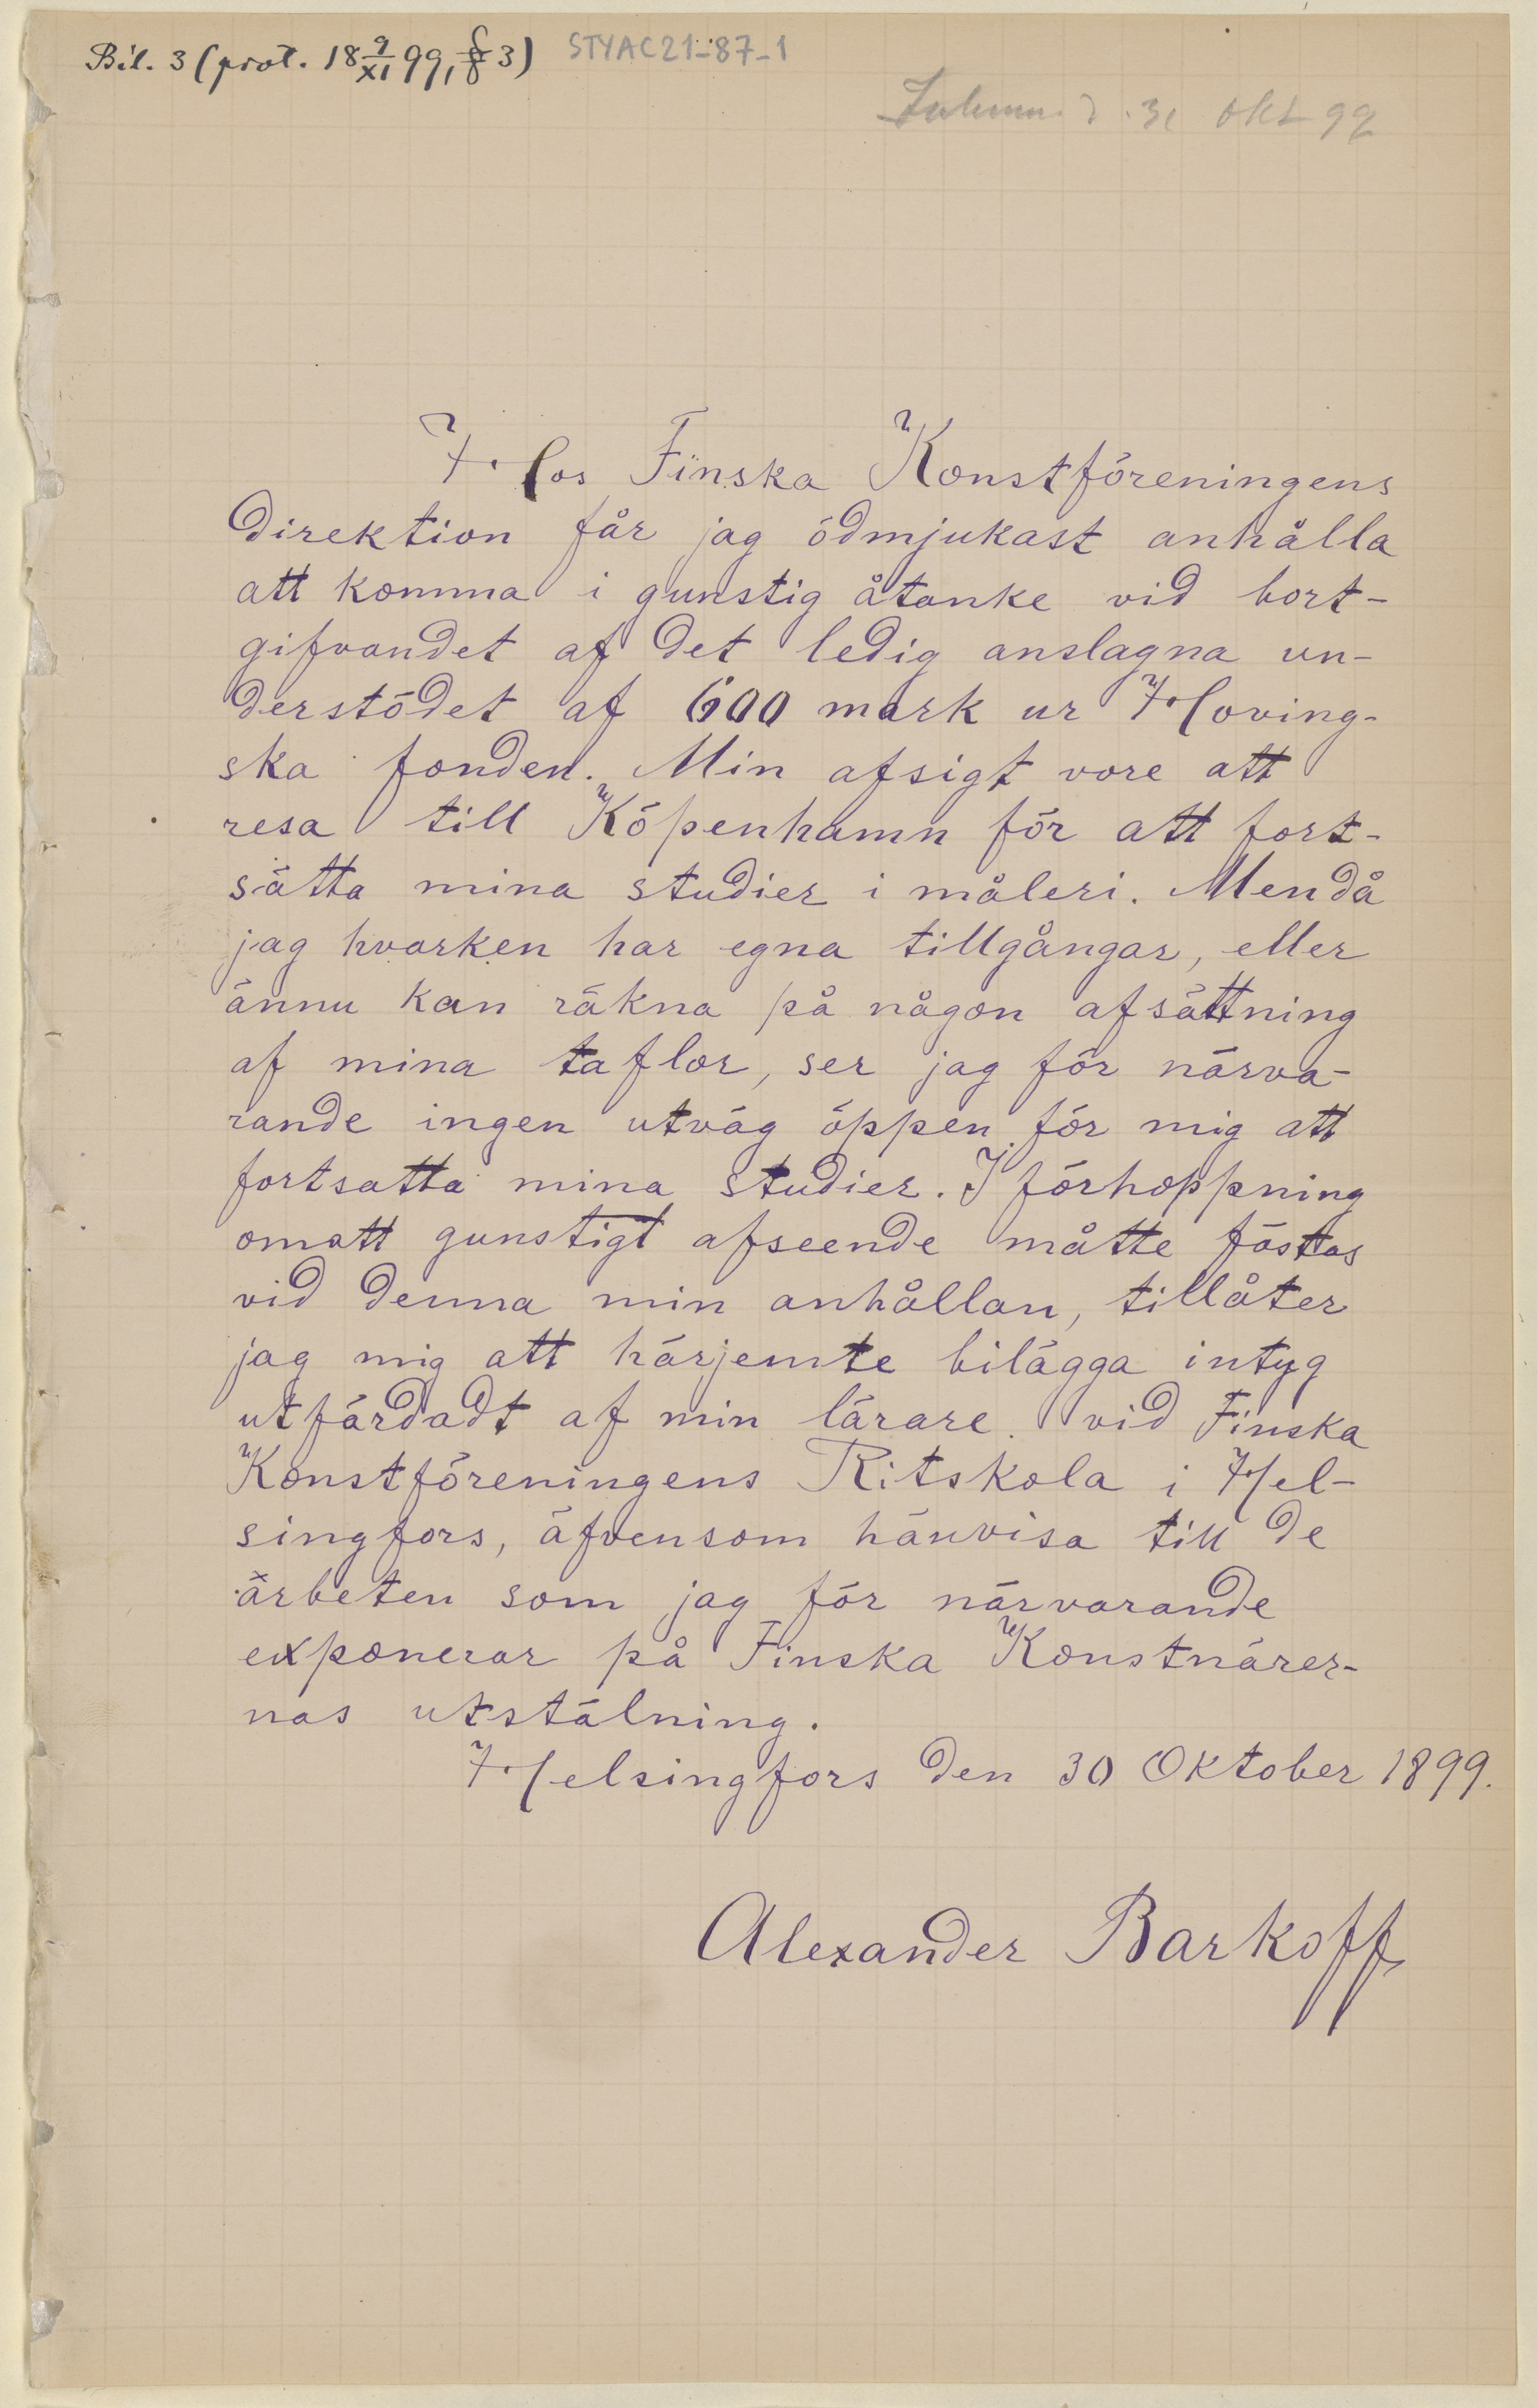 Bil. 3 (prot. 18 9/XI 99, § 3) STYAC21-87-1
d. 31 okt 99
Hos Finska Konstföreningens
direktion får jag ödmjukast anhålla
att komma i gunstig åtanke vid bort-
gifvandet af det ledig anslagna un-
derstödet af 600 mark ur Hoving-
ska fonden. Min afsigt vore att
resa till Köpenhamn för att fort-
sätta mina studier i måleri. Men då
jag hvarken har egna tillgångar, eller
ännu kan räkna på någon afsättning
af mina taflor, ser jag för närva-
rande ingen utväg öppen för mig att
fortsatta mina studier. I förhoppning
omatt gunstigt afseende måtte fästas
vid denna min anhållan, tillåter
jag mig att härjemte bilägga intyg
utfärdadt af min lärare vid Finska
Konstföreningens Ritskola i Hel-
singfors, äfvensom hänvisa till de
arbeten som jag för närvarande
exponerar på Finska Konstnärer-
nas utstälning.
Helsingfors den 30 Oktober 1899.
Alexander Barkoff